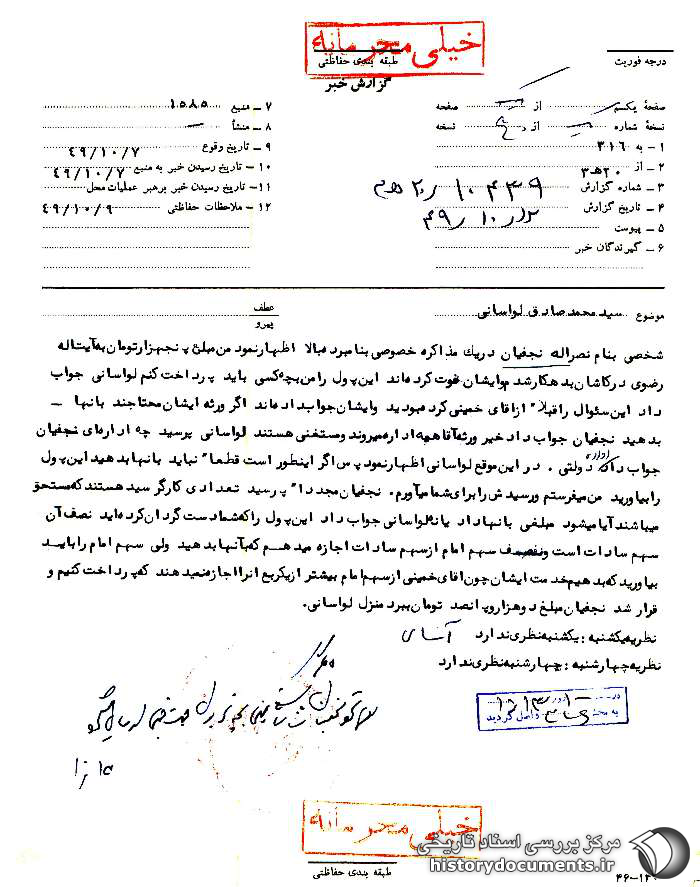 خیلی محرمانه
طبقه بندی حفاظتی
گزارش خبر
درجه فوریت
صفحهٔ یکم از صفحه
نسخهٔ شماره از نسخه
۱ - به ۳۱۶
۲ - از ۲۰ه۳
۳ - شماره گزارش ۱۰۴۳۹ / ۲۰ه۳
۴ - تاریخ گزارش ۱۲/۱۰/۴۹
۵ - پیوست
۶ - گیرندگان خبر
۷ - منبع ۱۵۸۵
۸ - منشأ
۹ - تاریخ وقوع ۴۹/۱۰/۷
۱۰ - تاریخ رسیدن خبر به منبع ۴۹/۱۰/۷
۱۱ - تاریخ رسیدن خبر برهبر عملیات محل
۱۲ - ملاحظات حفاظتی ۴۹/۱۰/۹
موضوع سید محمد صادق لواسانی
عطف
پیرو
شخصی بنام نصراله نجفیان در یک مذاکره خصوصی بنامبرده بالا اظهار نمود من مبلغ پنجهزار تومان به آیت اله
رضوی در کاشان بدهکار شدم وایشان فوت کرده اند این پول را من بچه کسی باید پرداخت کنم لواسانی جواب
داد این سئوال را قبلا" از آقای خمینی کرده بودید وایشان جواب داده اند اگر ورثه ایشان محتاجند بانها -
بدهید نجفیان جواب داد خیر ورثه آقا همه اداره میروند و مستغنی هستند لواسانی پرسید چه اداره ای نجفیان
جواب داد اداره دولتی . در این موقع لواسانی اظهار نمود پس اگر اینطور است قطعا" نباید بانها بدهید این پول
را بیاورید من میفرستم و رسیدش را برای شما میآورم . نجفیان مجددا" پرسید تعدادی کارگر سید هستند که مستحق
میباشند آیا میشود مبلغی بانها داد یا نه لواسانی جواب داد این پول را که شما دست گردان کرده اید نصف آن
سهم سادات است و نصف سهم امام از سهم سادات اجازه میدهم که بآنها بدهید ولی سهم امام را باید
بیاورید که بدهیم خدمت ایشان چون اقای خمینی از سهم امام بیشتر از یک ربع انرا اجازه نمیدهند که پرداخت کنیم و
قرار شد نجفیان مبلغ دوهزار و پانصد تومان ببرد منزل لواسانی .
نظریه یکشنبه : یکشنبه نظری ندارد آسای
نظریه چهارشنبه : چهارشنبه نظری ندارد
خیلی محرمانه
طبقه بندی حفاظتی
۴۶-۱۲
مرکز بررسی اسناد تاریخی
historydocuments.ir